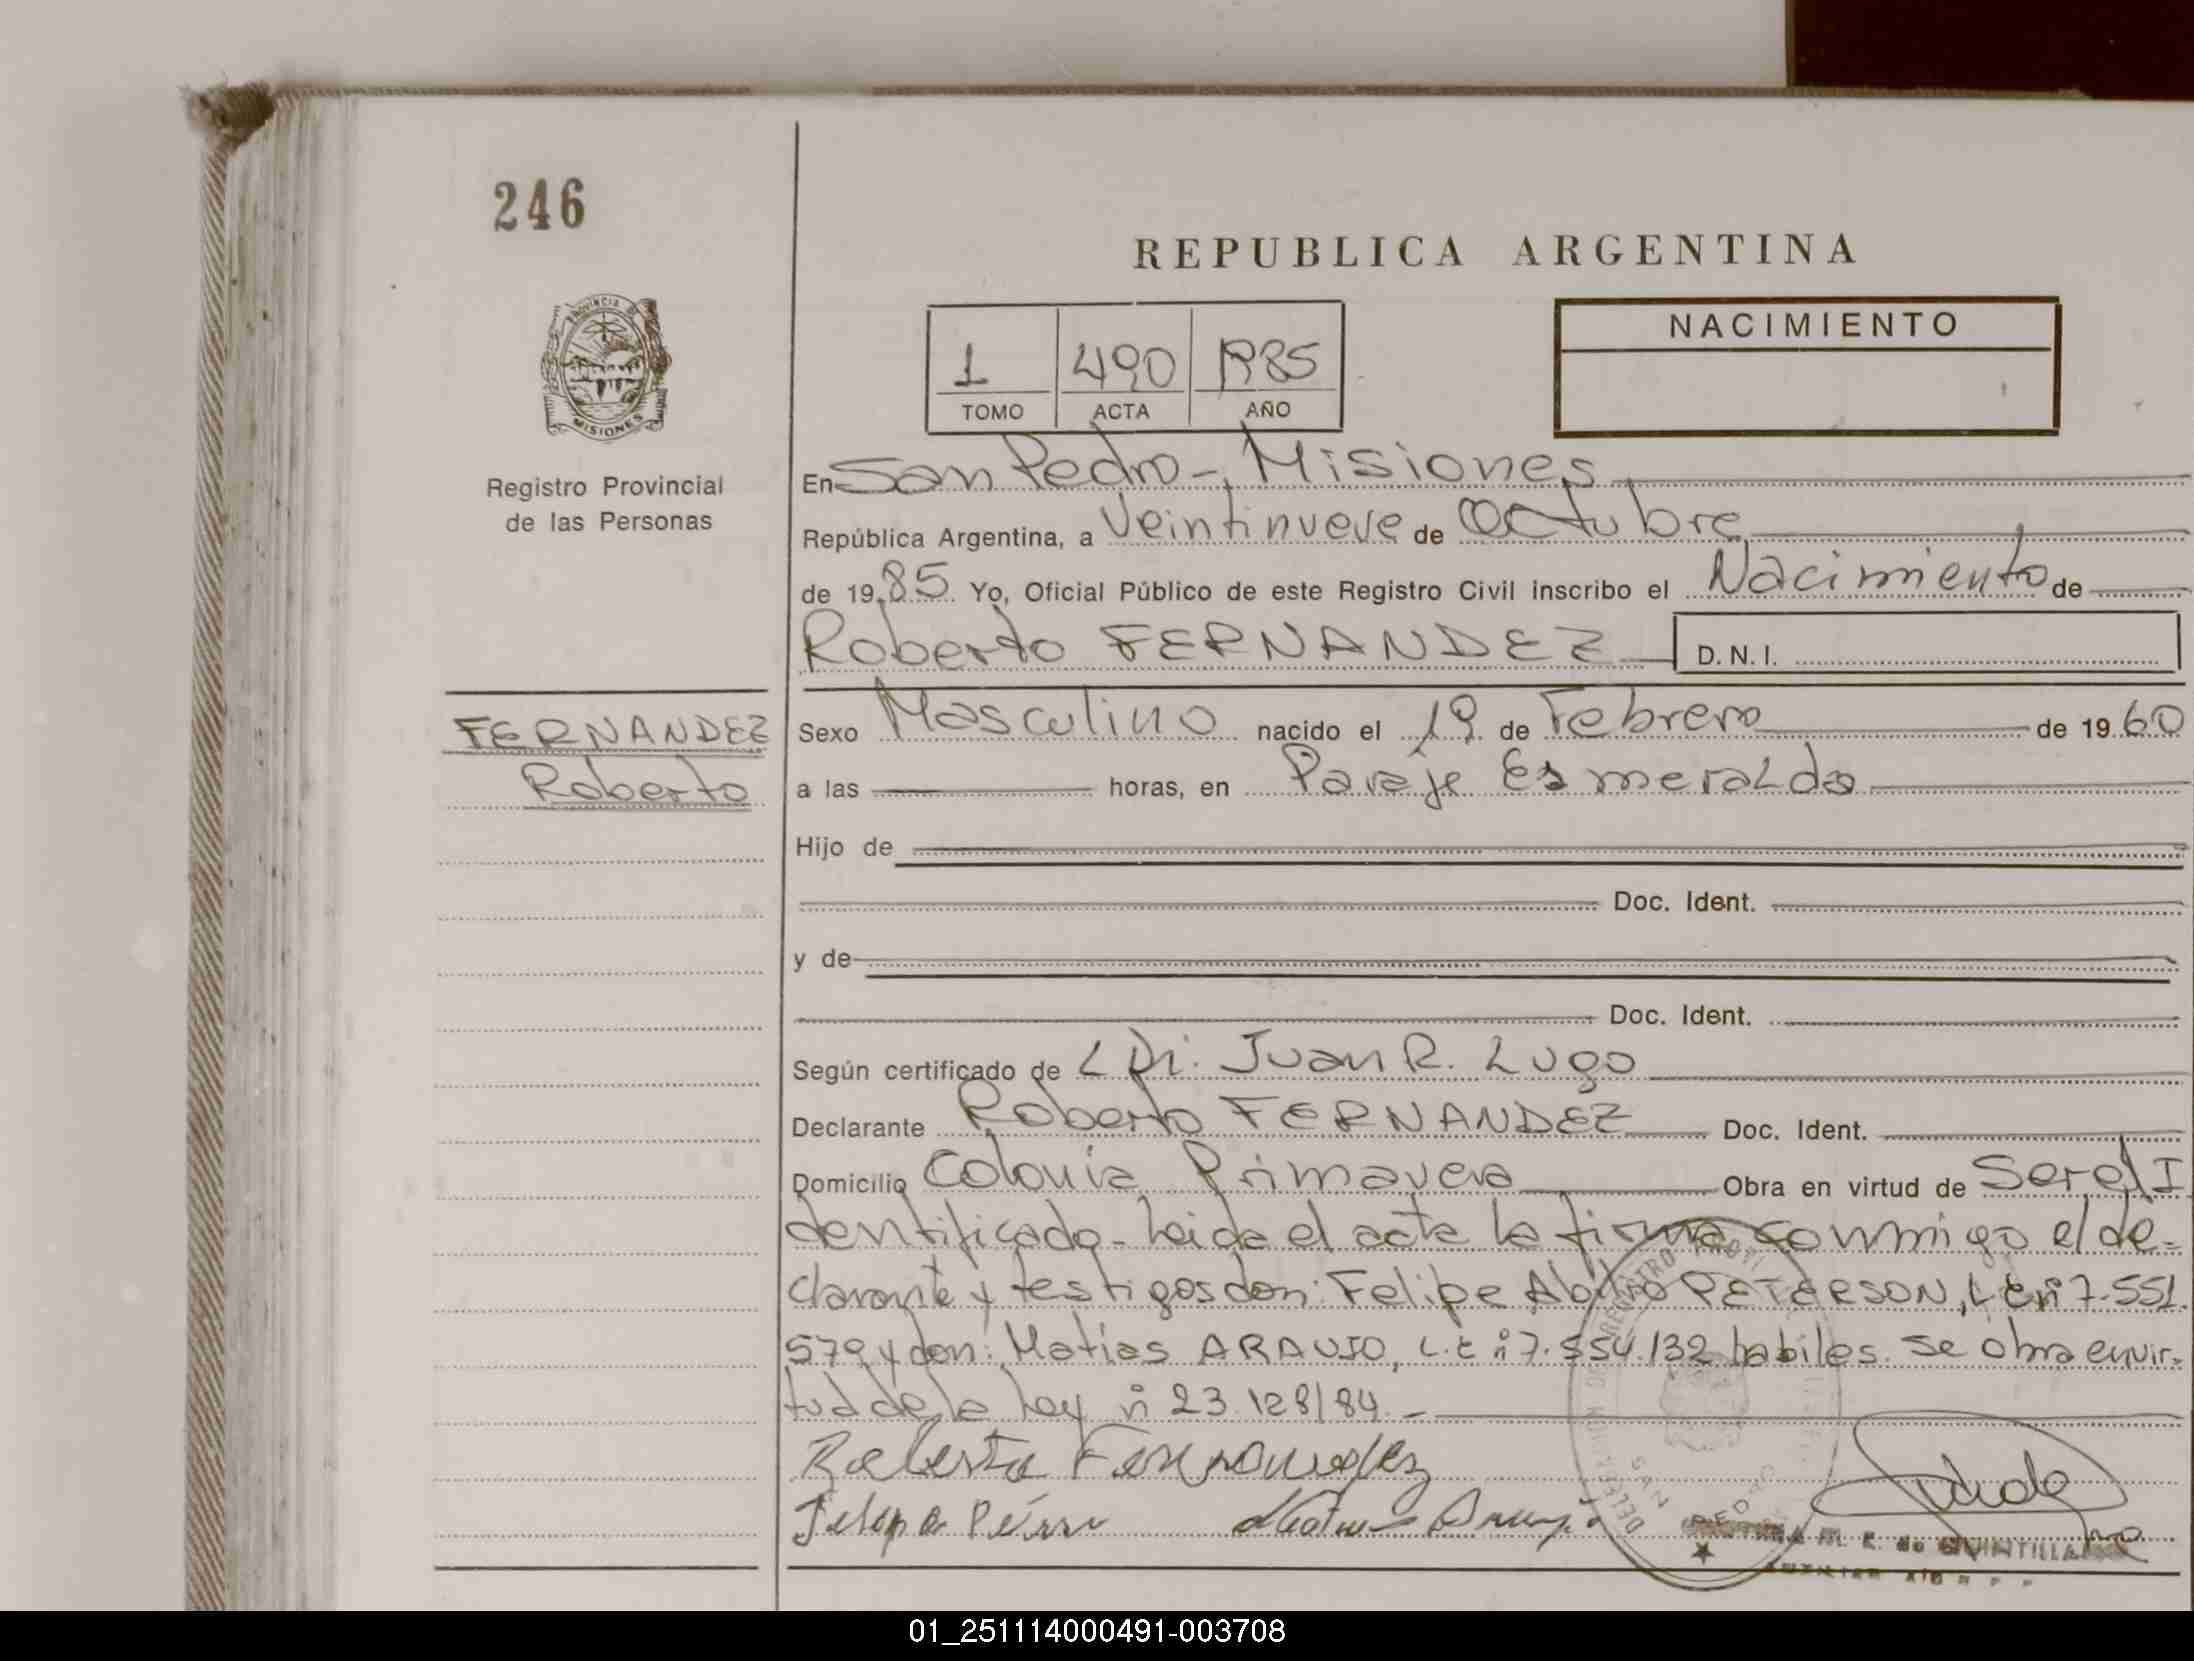 246
REPUBLICA ARGENTINA
PROVINCIA DE
MISIONES
Registro Provincial
de las Personas
1 490 1985
TOMO ACTA AÑO
NACIMIENTO
En San Pedro - Misiones
República Argentina, a Veintinueve de Octubre
de 1985 Yo, Oficial Público de este Registro Civil inscribo el Nacimiento de
Roberto FERNANDEZ D.N.I.
FERNANDEZ
Roberto
Sexo Masculino nacido el 19 de Febrero de 1960
a las horas, en Paraje Esmeralda
Hijo de
Doc. Ident.
y de
Doc. Ident.
Según certificado de Juan R. Lugo
Declarante Roberto FERNANDEZ Doc. Ident.
Domicilio Colonia Primavera Obra en virtud de Ser el I
dentificado - Leida el acta la firma conmigo el de=
clarante y testigos don: Felipe PETERSON, L.E nº 7.551.
579 y don: Matias ARAUJO, L.E nº 7.554.132 habiles. Se obra en vir=
tud de la Ley nº 23.128/84. -
Roberto Fernandez
SAN PEDRO
M. R. de QUINTILLA
01_251114000491-003708